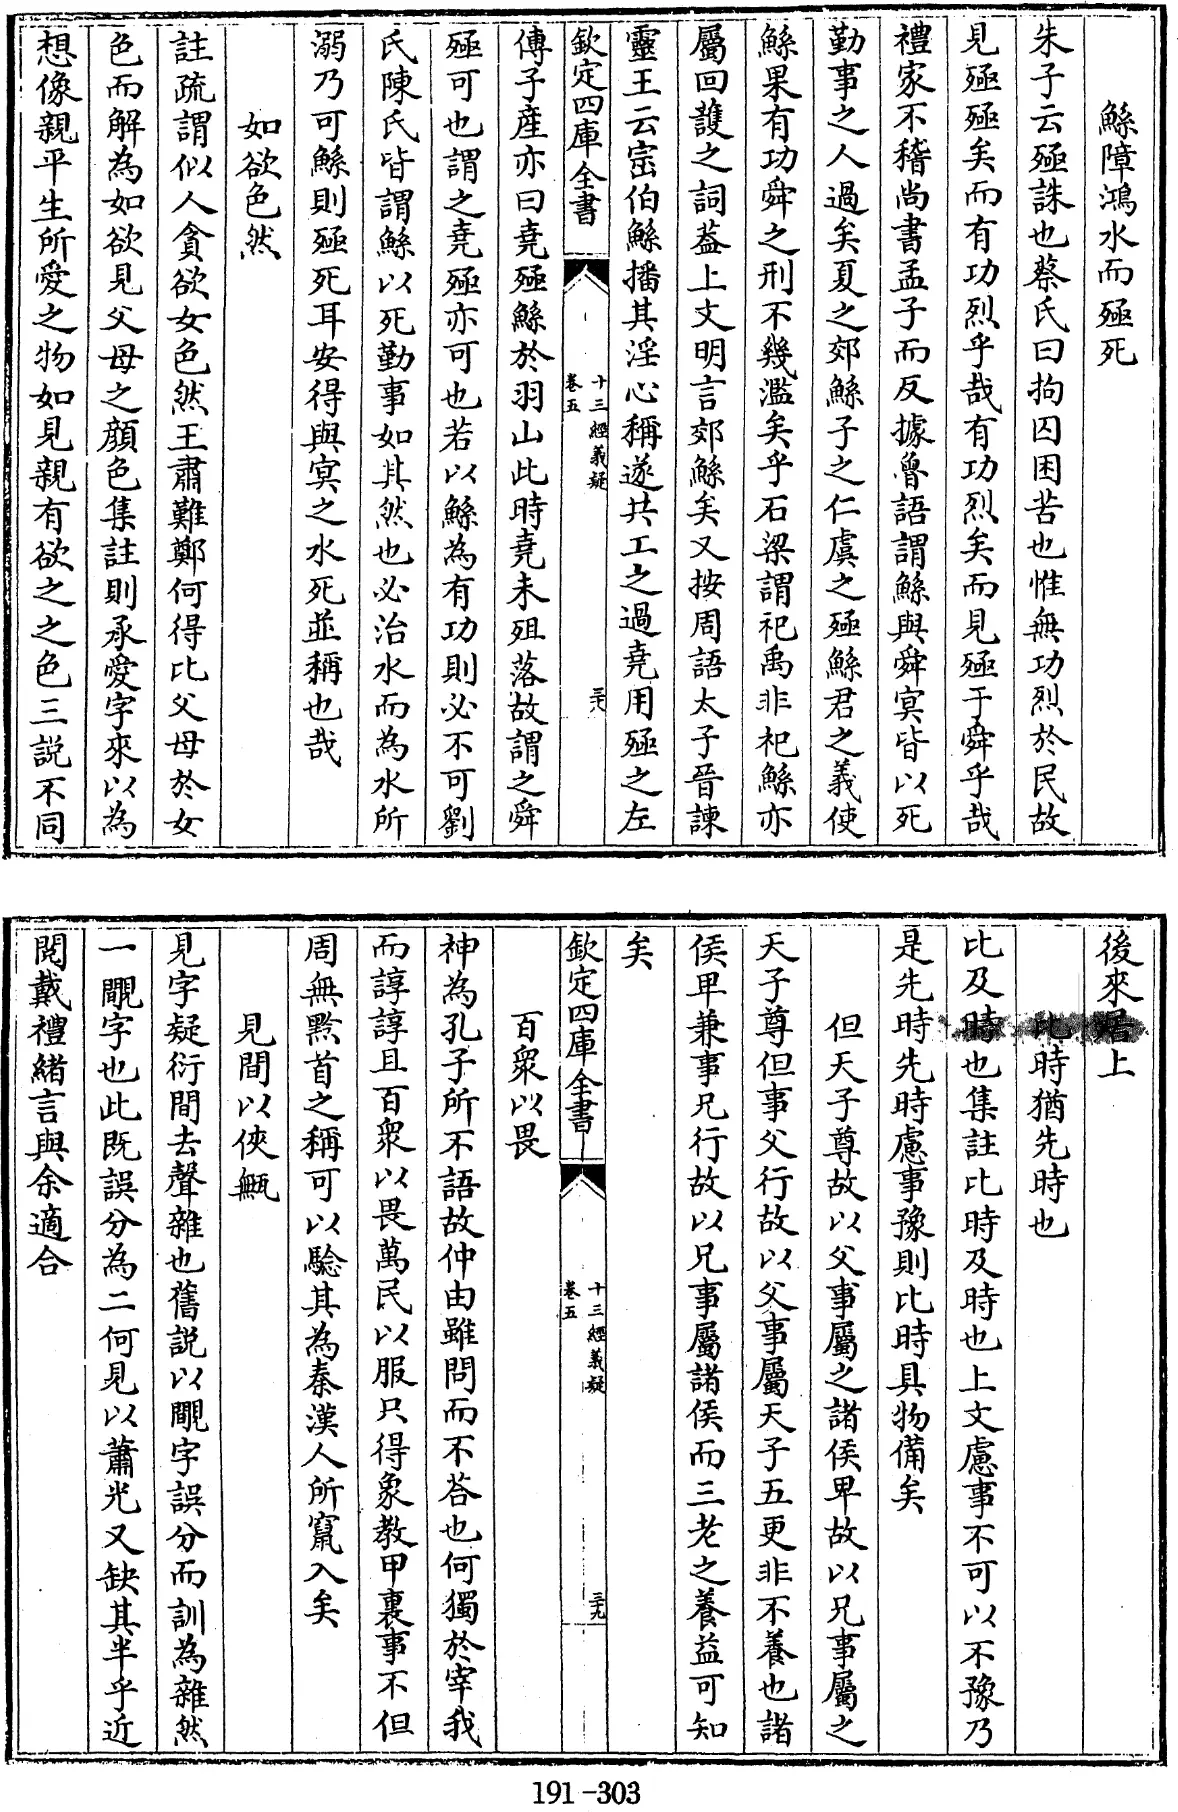 鯀障鴻水而殛死
朱子云殛誅也蔡氏曰拘囚困苦也惟無功烈於民故
見殛殛矣而有功烈乎哉有功烈矣而見殛于舜乎哉
禮家不稽尚書孟子而反據魯語謂鯀與舜冥皆以死
勤事之人過矣夏之郊鯀子之仁虞之殛鯀君之義使
鯀果有功舜之刑不幾濫矣乎石梁謂祀禹非祀鯀亦
屬回護之詞葢上文明言郊鯀矣又按周語太子晉諫
靈王云崇伯鯀播其淫心稱遂共工之過堯用殛之左
欽定四庫全書
十三經義疑
卷五
三八
傳子產亦曰堯殛鯀於羽山此時堯未殂落故謂之舜
殛可也謂之堯殛亦可也若以鯀為有功則必不可劉
氏陳氏皆謂鯀以死勤事如其然也必治水而為水所
溺乃可鯀則殛死耳安得與冥之水死並稱也哉
如欲色然
註疏謂似人貪欲女色然王肅難鄭何得比父母於女
色而解為如欲見父母之顏色集註則承愛字來以為
想像親平生所愛之物如見親有欲之之色三說不同
後來居上
比時猶先時也
比及時也集註比時及時也上文慮事不可以不豫乃
是先時先時慮事豫則比時具物備矣
但天子尊故以父事屬之諸侯卑故以兄事屬之
天子尊但事父行故以父事屬天子五更非不養也諸
侯卑兼事兄行故以兄事屬諸侯而三老之養益可知
矣
欽定四庫全書
十三經義疑
卷五
三九
百衆以畏
神為孔子所不語故仲由雖問而不荅也何獨於宰我
而諄諄且百衆以畏萬民以服只得象教甲裏事不但
周無黔首之稱可以騐其為秦漢人所竄入矣
見間以俠甒
見字疑衍間去聲雜也舊說以覵字誤分而訓為雜然
一覵字也此既誤分為二何見以蕭光又缺其半乎近
閱戴禮緒言與余適合
191-303